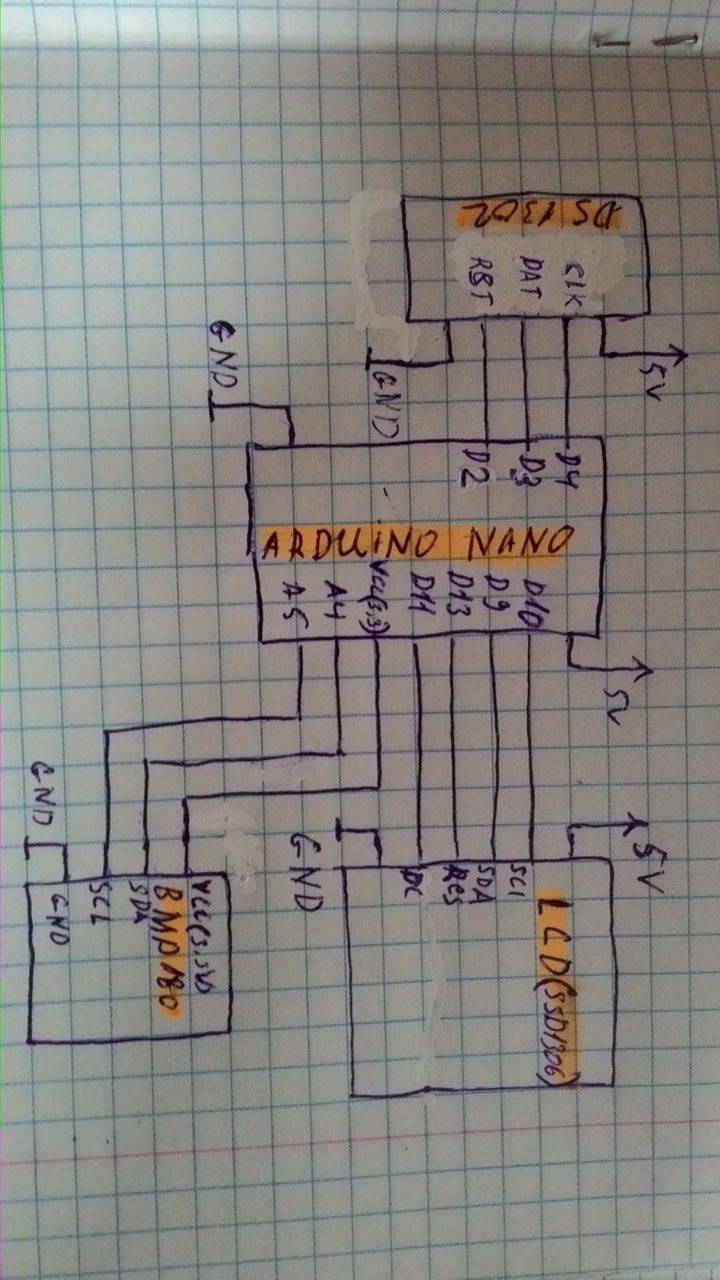 DS1302
CLK
DAT
RST
5V
GND
GND
D4
D3
D2
ARDUiNO NANO
D10
D9
D13
D11
VCC(3,3)
A4
A5
5V
5V
GND
GND
SCl
SDA
RES
DC
LCD(SSD1306)
VCC(3,3V)
BMP180
SDA
SCL
GND